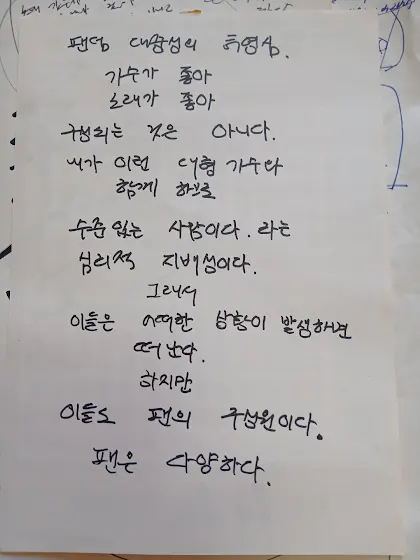 팬덤 대중성의 허영심.
가수가 좋아
노래가 좋아
구성되는 것은 아니다.
내가 이런 대형 가수와
함께 하므로
수준있는 사람이다. 라는
심리적 지배성이다.
그래서
이들은 어떠한 상황이 발생하면
떠난다.
하지만
이들도 팬의 구성원이다.
팬은 다양하다.